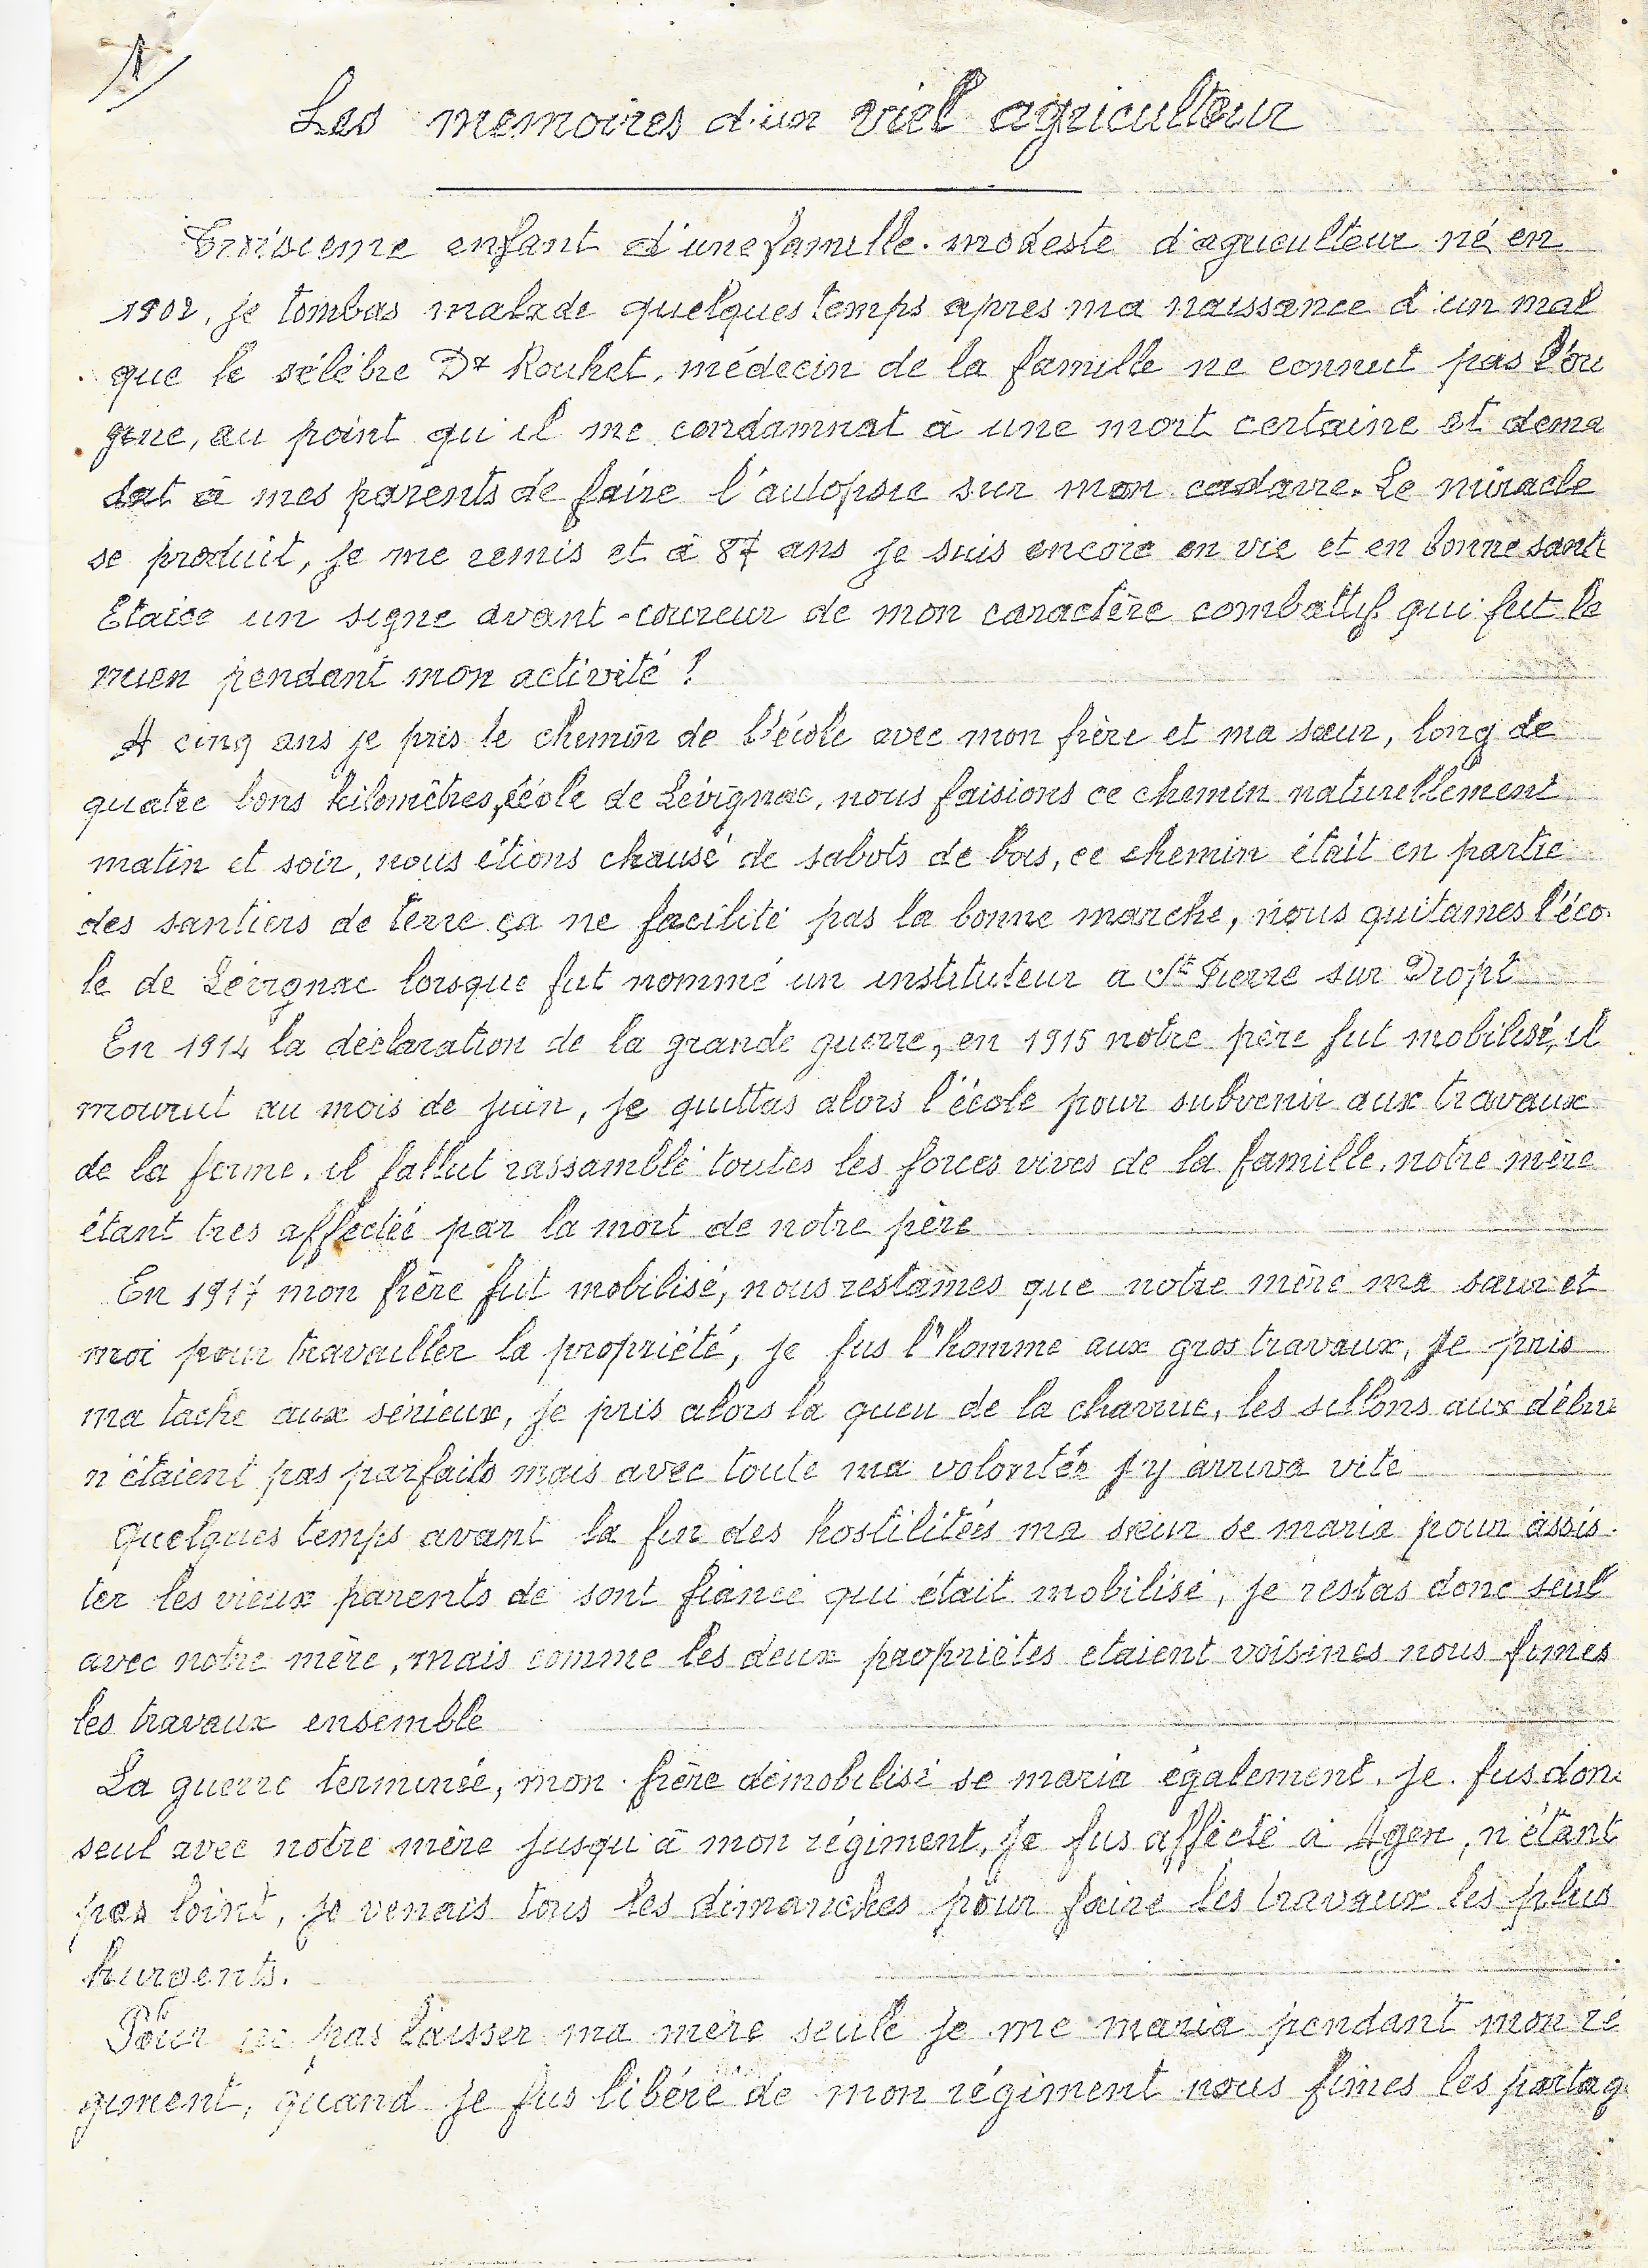 1/
Les memoires d'un viel agriculteur
Troisieme enfant d'une famille modeste d'agriculteur né en
1902, je tombas malade quelques temps apres ma naissance d'un mal
que le sélèbre Dr Rouhet, médecin de la famille ne connut pas l'ori
gine, au point qu'il me condamnat à une mort certaine et dema
dat à mes parents de faire l'autopsie sur mon cadavre. Le miracle
se produit, je me remis et à 87 ans je suis encore en vie et en bonne santé
Etaice un signe avant-coureur de mon caractère combattif qui fut le
mien pendant mon activité !
A cinq ans je pris le chemin de l'école avec mon frère et ma sœur, long de
quatre bons kilomètres, école de Lévignac, nous faisions ce chemin naturellement
matin et soir, nous étions chausé de sabots de bois, ce chemin était en partie
des santiers de terre ça ne facilité pas la bonne marche, nous quitames l'éco
le de Lévignac lorsque fut nommé un instituteur a St Pierre sur Dropt
En 1914 la déclaration de la grande guerre, en 1915 notre père fut mobilisé, il
mourut au mois de juin, je quittas alors l'école pour subvenir aux travaux
de la ferme. il fallut rassamblé toutes les forces vives de la famille, notre mère
étant tres affectéé par la mort de notre père
En 1917 mon frère fut mobilisé, nous restames que notre mère ma sœur et
moi pour travailler la propriété, je fus l'homme aux gros travaux, je pris
ma tache aux sérieux, je pris alors la queu de la charrue, les sillons aux débu
n'étaient pas parfaits mais avec toute ma volontée j'y arriva vite
Quelques temps avant la fin des hostilitées ma sœur se maria pour assis-
ter les vieux parents de sont fiancé qui était mobilisé, je restas donc seul
avec notre mère, mais comme les deux propriétes etaient voisines nous fimes
les travaux ensemble
La guerre terminée, mon frère démobilisé se maria également. je fus donc
seul avec notre mère jusqu'à mon régiment, je fus affecté à Agen, n'étant
pas loint, je venais tous les dimanches pour faire les travaux les plus
hurgents.
Pour ne pas laisser ma mère seule je me maria pendant mon ré
giment, quand je fus libéré de mon régiment nous fimes les partag